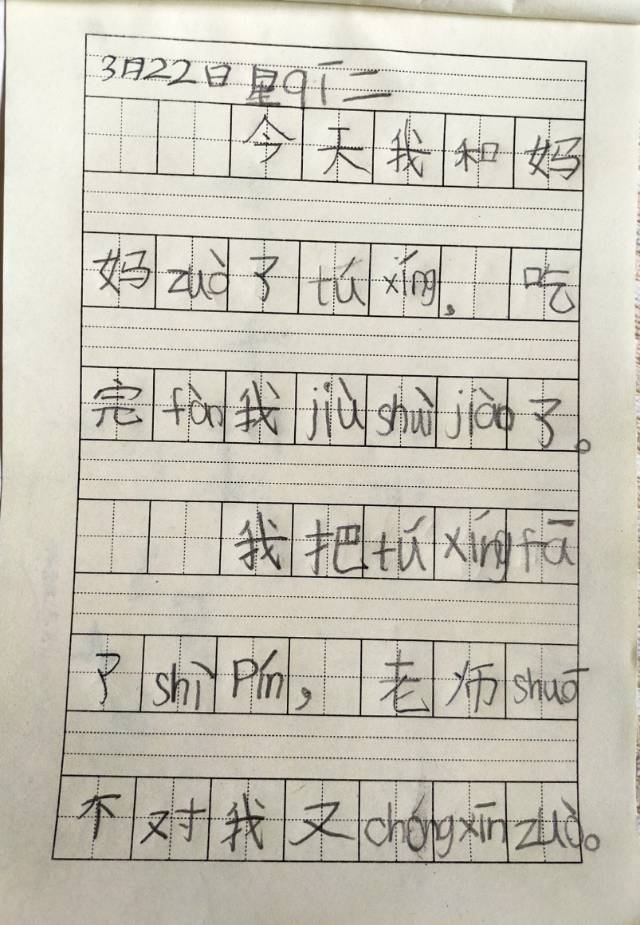 3月22日 星qī二
今天我和妈
妈zuò了tú xíng, 吃
完fàn我jiù shuì jiào了。
我把tú xíng fā
了shì Pín, 老师shuō
不对我又chóng xīn zuò。